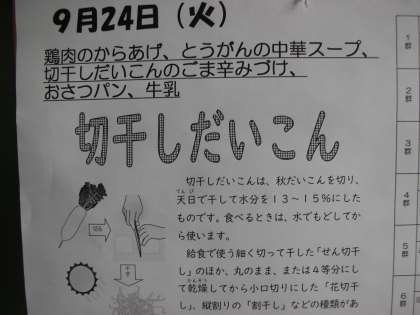 9月24日(火)
鶏肉のからあげ、とうがんの中華スープ、
切干しだいこんのごま辛みづけ、
おさつパン、牛乳
切干しだいこん
切干しだいこんは、秋だいこんを切り、
天日で干して水分を13~15%にした
ものです。食べるときは、水でもどしてか
ら使います。
給食で使う細く切って干した「せん切干
し」のほか、丸のまま、または4等分にし
て乾燥してから小口切りにした「花切干
し」、縦割りの「割干し」などの種類があ
1
群
2
群
3
群
4
群
5
群
6
群